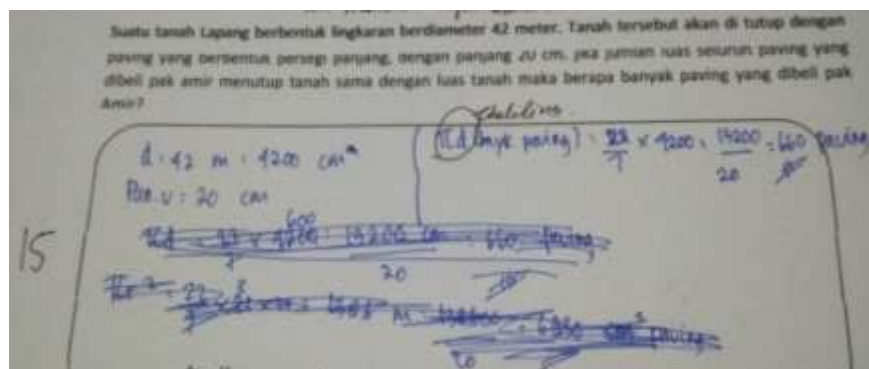 Suatu tanah Lapang berbentuk lingkaran berdiameter 42 meter. Tanah tersebut akan di tutup dengan
paving yang berbentuk persegi panjang, dengan panjang 20 cm. jika jumlah luas seluruh paving yang
dibeli pak amir menutup tanah sama dengan luas tanah maka berapa banyak paving yang dibeli pak
Amir?
d = 42 m = 4200 cm
20 cm
πd = 22/7 × 4200 = 13200/20 = 660 paving
15
πd = 22/7 × 4200 = 13200 cm = 660 paving
20
πr² = 22/7
paving